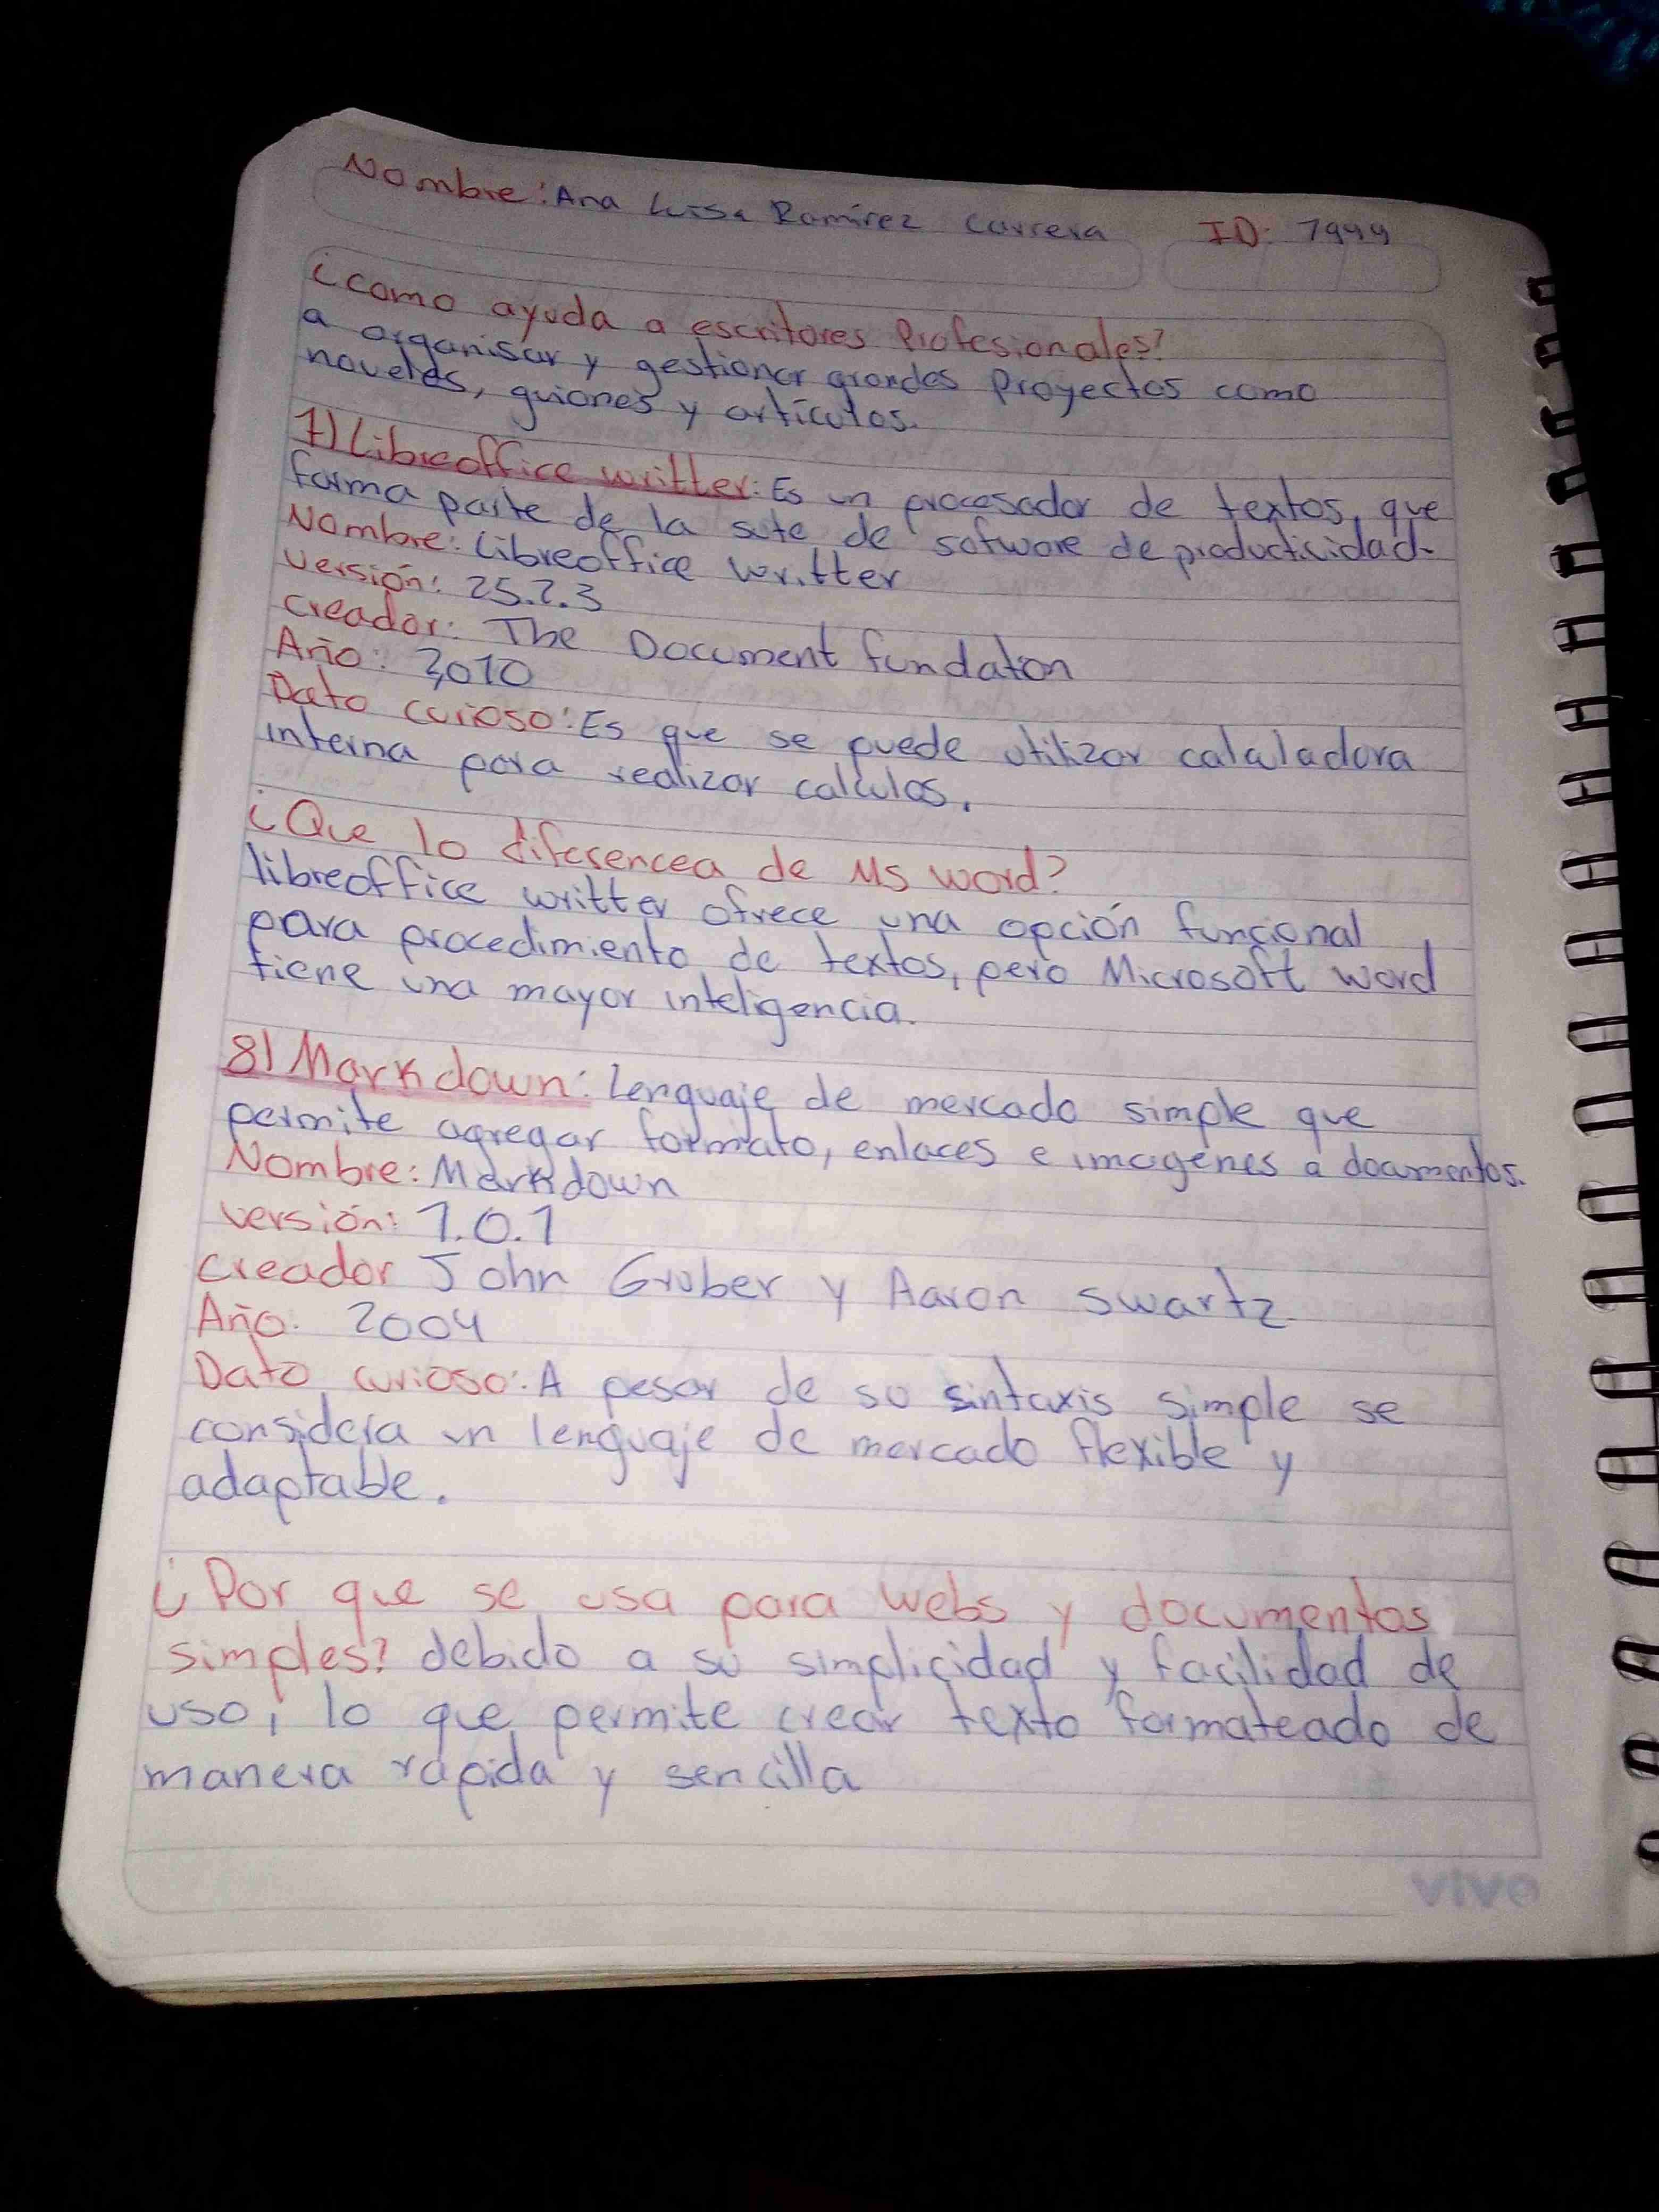 Nombre: Ana Luisa Ramírez Carrera ID: 7944
¿como ayuda a escritores Profesionales?
a organisar y gestionar grandes Proyectos como
novelas, guiones y artículos.
7) Libreoffice writter: Es un procesador de textos, que
forma parte de la sute de sofware de producticidad.
Nombre: Libreoffice writter
versión: 25.2.3
creador: The Document fundaton
Año: 2010
Dato curioso: Es que se puede utilizar calculadora
interna para realizar calculos.
¿Que lo diferencea de Ms word?
libreoffice writter ofrece una opción funcional
para procedimiento de textos, pero Microsoft word
tiene una mayor inteligencia.
8) Markdown: lenguaje de mercado simple que
permite agregar formato, enlaces e imagenes a documentos.
Nombre: Markdown
versión: 1.0.1
creador John Gruber y Aaron swartz
Año: 2004
Dato curioso: A pesar de su sintaxis simple se
considera un lenguaje de mercado flexible y
adaptable.
¿Por que se usa para webs y documentos
simples? debido a su simplicidad y facilidad de
uso, lo que permite crear texto formateado de
manera rápida y sencilla
vivo